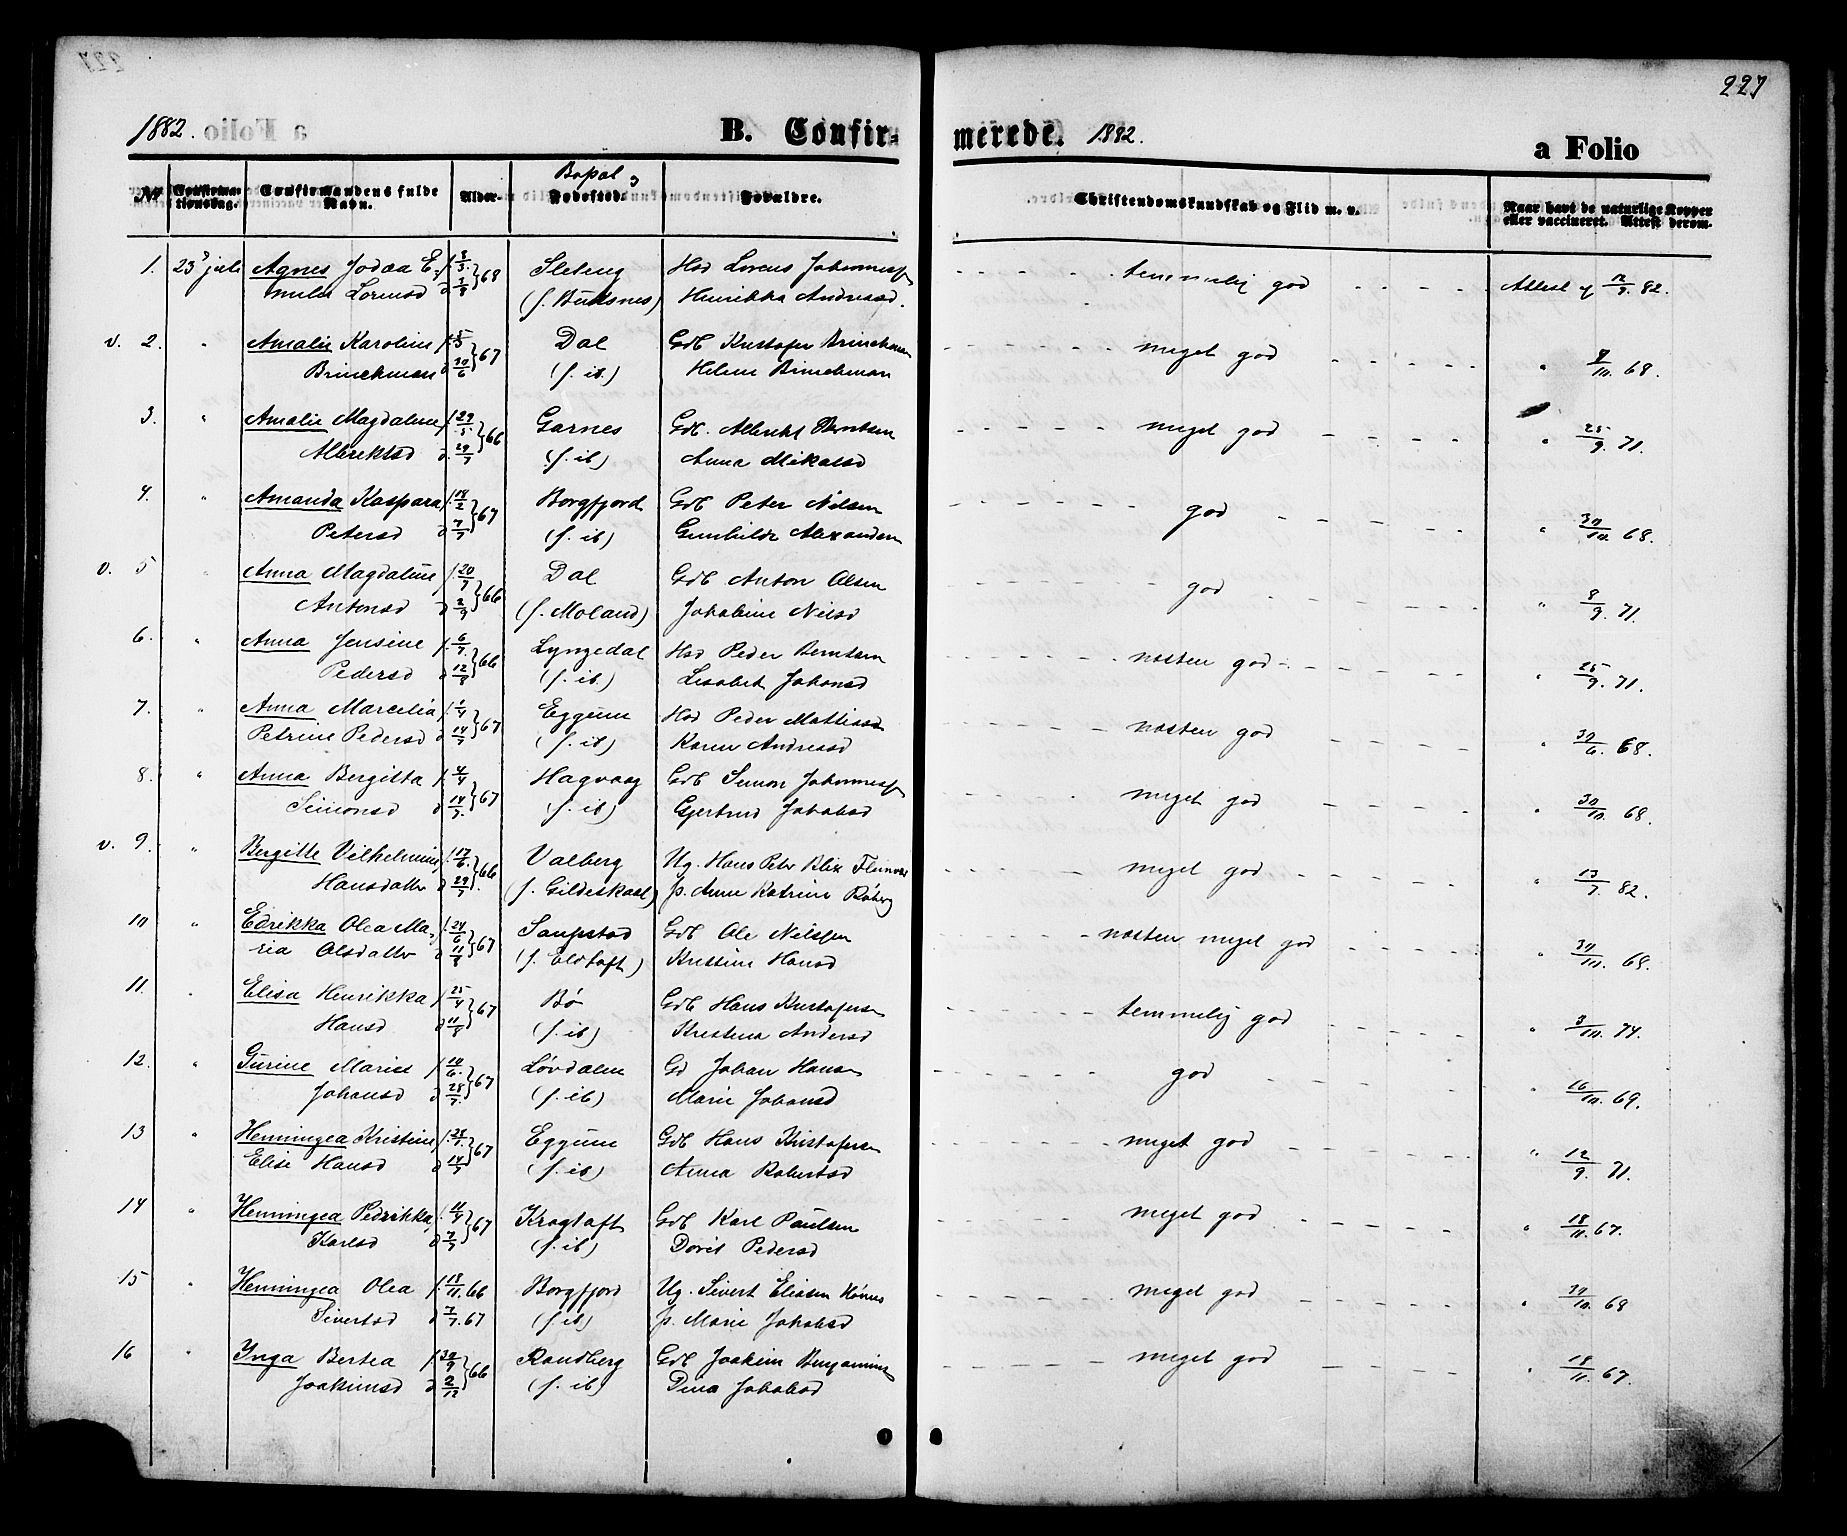 227
1882. B. Confir- merede. 1882. a Folio
Bopæl &
№ Confirma- Confirmandens fulde Alder. Fødested. Forældre. Christendomskundskab og Flid m. v. Naar havt de naturlige Kopper
tionsdag. Navn. eller vaccineret. Attest derom.
1. 23 juli Agnes Jodæa E- f. 68 Sletteng Hsd Lorens Johannessen temmelig god Attest af 82.
milie Lorensd d. (f. Buksnes) Henrikka Andreasd.
v. 2. " Amalie Karoline f. 67 Dal Gdb Kristofer Brinchman meget god " 68.
Brinchman d 30/6 (f. ib.) Helene Brinchman
3. " Amalie Magdalene f. 29/5 66 Garnes Gdb. Albrikt Berntsen meget god " 25/9. 71.
Albriktsd d. 29/7 (f. ib) Anna Mikalsd
4. " Amanda Kaspara f. 18/2 67 Borgfjord Gdb Peter Nilsen god " 30/10. 68.
Petersd d 7/7 (f. ib) Gunhilda Alexandersen
v. 5 " Anna Magdalene f. 20/7 66 Dal Gdb Anton Olsen god " 8/9. 71.
Antonsd d 2/9 (f. Moland) Jakobine Nilsd
6. " Anna Jensine f. 6/7. 66 Lyngedal Hsd Peder Berntsen næsten god " 25/9. 71.
Pedersd d 12/8 (f. ib.) Lisabet Johansd
7. " Anna Marcelia f. 1/4 67 Eggum Hsd Peder Mattiasen næsten god " 30/6. 68.
Petrine Pedersd d 14/7 (f. ib) Karen Andreasd
8. " Anna Bergitta f. 4/4 67 Hagvaag Gdb Simon Johannessen meget god " 30/10. 68.
Simonsd d 14/7. (f. ib) Gjertrud Jakobsd
v. 9. " Bergitte Vilhelmine f. 17/6. 66 Valberg Ug. Hans Peter Blix Fleinvær meget god " 13/7 82.
Hansdatter d 29/7. (f. Gildeskaal) p. Anne Katrine Røberg
10 " Edrikka Olea Ma- f. 24/6 67 Saupstad Gdb Ole Nilsen næsten meget god " 30/10. 68.
ria Olsdatter d 11/8 (f. Eldtoft) Kristine Hansd
11. " Elisa Henrikka f. 25/4 67 Bø Gdb Hans Kristofersen temmelig god " 8/10. 74.
Hansd d 11/8 (f. ib) Kristena Andersd
12. " Gurine Marie f. 10/6. 67 Løvdalen Gd Johan Hansen god " 16/10. 69.
Johansd d 28/7. (f. ib) Marie Johansd
13 " Henningea Kristine f. 67 Eggum Gdb Hans Kristofersen meget god " 12/9. 71.
Elise Hansd d 14/7 (f. ib) Anna Robertsd
14 " Henningea Pedrikka f. 11/4 67 Kragtoft Gdb Karl Paulsen meget god " 18/11. 67.
Karlsd d 7/7 (f. ib) Dorit Pedersd
15 " Henningea Olea f. 18/11. 66 Borgfjord Ug. Sivert Eliasen meget god " 30/10. 68
Sivertsd d 7/7. 67 (f. ib) p. Marie Jakobsd
16 " Inga Bertea f. 30/9 66 Randberg Gdb Joakim Benjaminsen meget god " 18/11. 67.
Joakimsd d 2/12 (f. ib) Dina Jakobsd